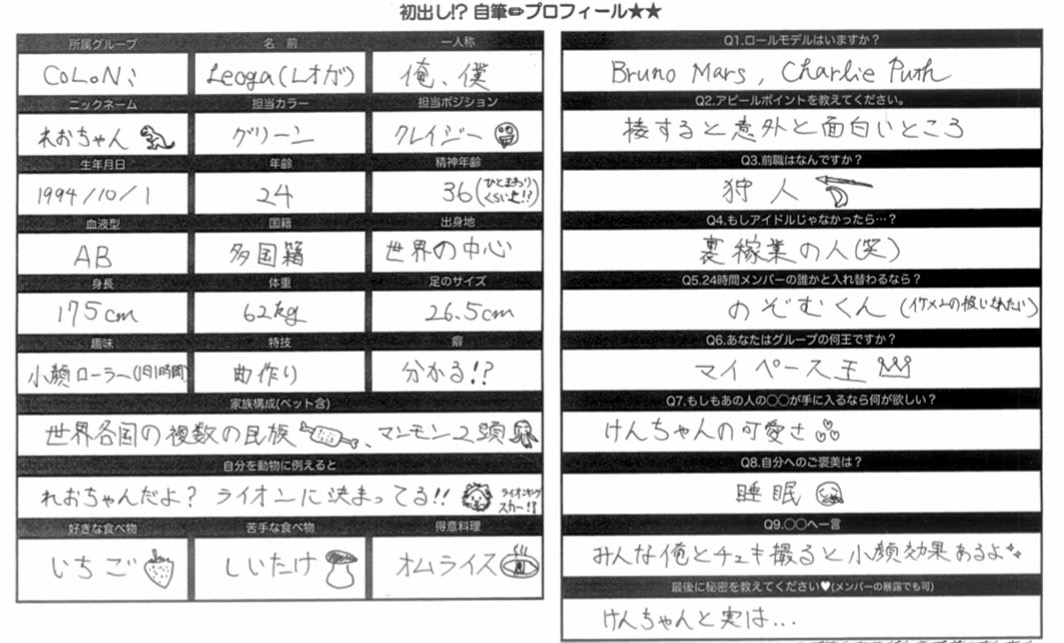 初出し!? 自筆✏プロフィール★★
所属グループ
CoLoN:
名 前
Leoga(レオガ)
一人称
俺、僕
ニックネーム
れおちゃん
担当カラー
グリーン
担当ポジション
クレイジー
生年月日
1994/10/1
年齢
24
精神年齢
36(ひとまわりくらい上!?)
血液型
AB
国籍
多国籍
出身地
世界の中心
身長
175cm
体重
62kg
足のサイズ
26.5cm
趣味
小顔ローラー(1日1時間)
特技
曲作り
癖
分かる!?
家族構成(ペット含)
世界各国の複数の民族、マンモス2頭
自分を動物に例えると
れおちゃんだよ? ライオンに決まってる!! ライオンキングスカー!?
好きな食べ物
いちご
苦手な食べ物
しいたけ
得意料理
オムライス
Q1.ロールモデルはいますか?
Bruno Mars, Charlie Puth
Q2.アピールポイントを教えてください。
接すると意外と面白いところ
Q3.前職はなんですか?
狩人
Q4.もしアイドルじゃなかったら…?
裏稼業の人(笑)
Q5.24時間メンバーの誰かと入れ替わるなら?
のぞむくん(イケメンの扱いされたい)
Q6.あなたはグループの何王ですか?
マイペース王
Q7.もしもあの人の○○が手に入るなら何が欲しい?
けんちゃんの可愛さ
Q8.自分へのご褒美は?
睡眠
Q9.○○へ一言
みんな俺とチェキ撮ると小顔効果あるよ
最後に秘密を教えてください♥(メンバーの暴露でも可)
けんちゃんと実は…